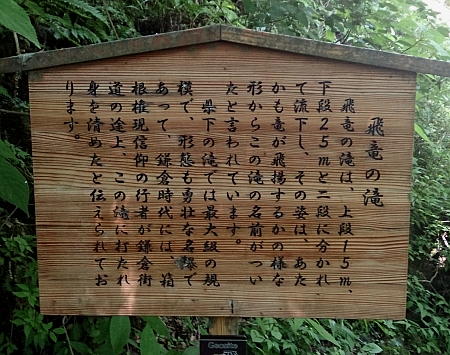 飛竜の滝
飛竜の滝は、上段15m、
下段25mと二段に分かれ
て流下し、その姿は、あた
かも竜が飛揚するかの様な
形からこの滝の名前がつい
たと言われています。
県下の滝では最大級の規
模で、形態も勇壮な名瀑で
あって、鎌倉時代には、箱
根権現信仰の行者が鎌倉街
道の途上、この滝に打たれ
身を清めたと伝えられてお
ります。
Geosite